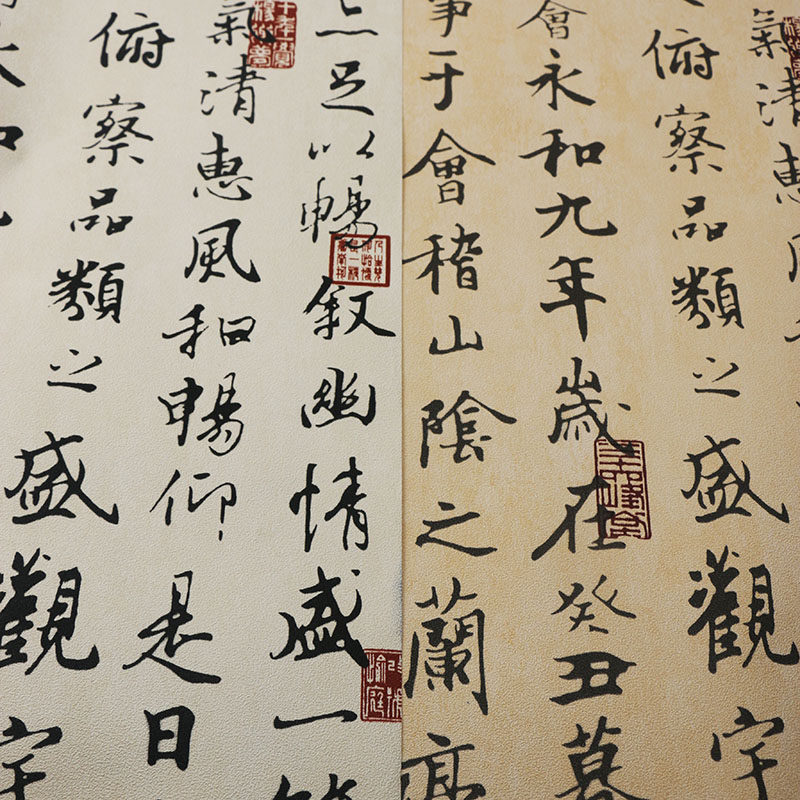 氣清惠風
俯察品類之盛觀宇
會永和九年歲在癸丑暮
事于會稽山陰之蘭亭
足以暢叙幽情盛一
氣清惠風和暢仰是日
俯察品類之盛觀宇